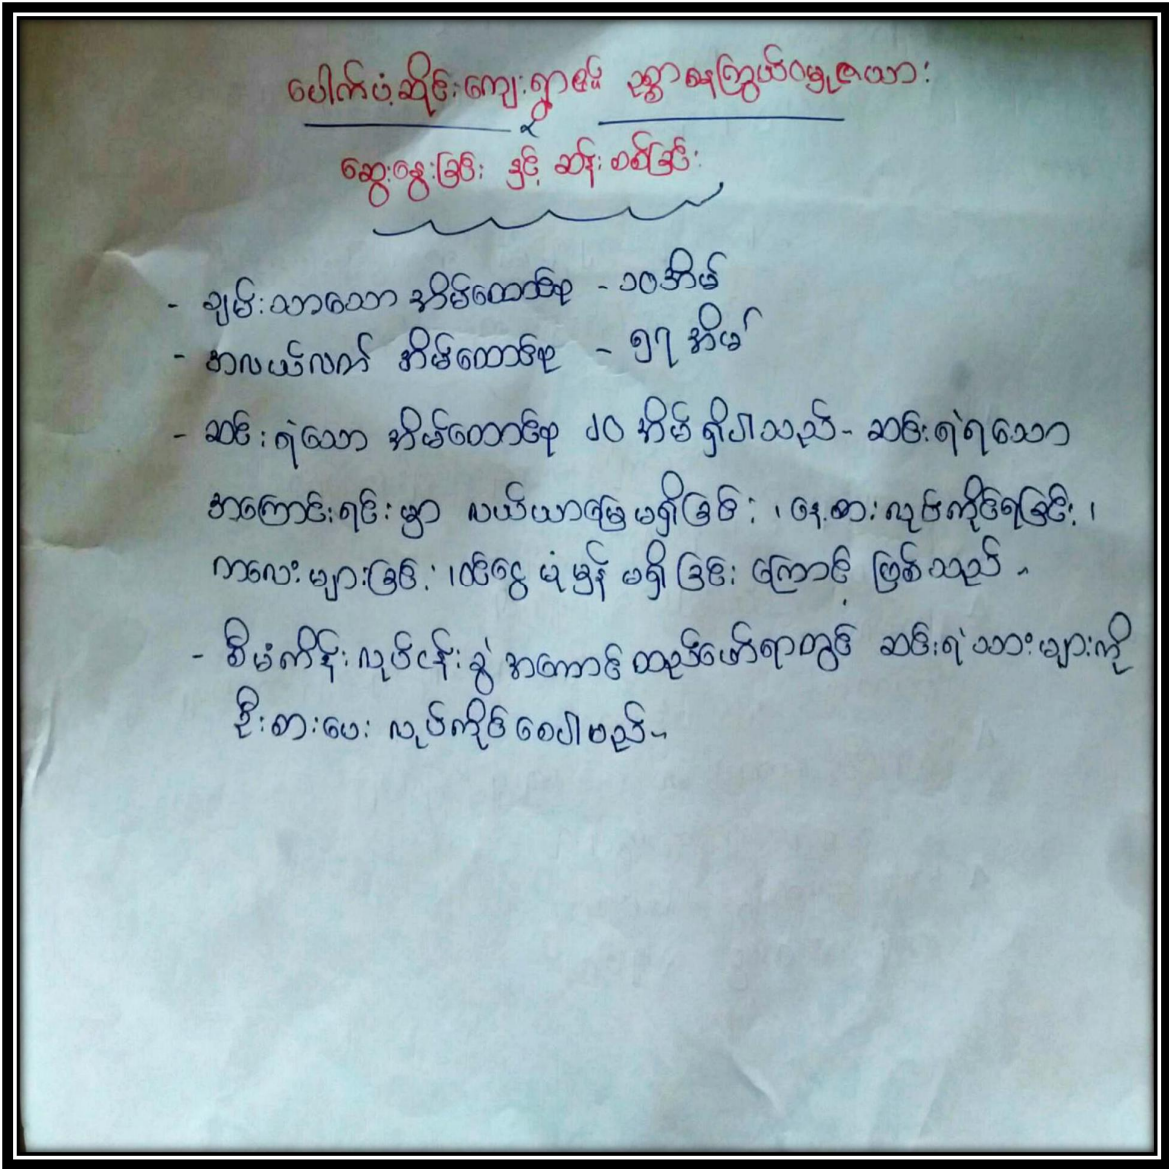 ပေါက်ပံ့ဆိုင်းကျေးရွာ၏ ညွှာနေကြွယ်ဝမှုဇယား
ဆွေးနွေးခြင်း နှင့် ဆန်းစစ်ခြင်း
- ချမ်းသာသော အိမ်ထောင်စု - ၁၀အိမ်
- အလယ်လတ် အိမ်ထောင်စု - ၅၇ အိမ်
- ဆင်းရဲသော အိမ်ထောင်စု ၂၀ အိမ် ရှိပါသည်။ ဆင်းရဲရသော
အကြောင်းရင်းမှာ လယ်ယာမြေမရှိခြင်း၊ နေ့စားလုပ်ကိုင်ရခြင်း၊
ကလေးများခြင်း၊ ဝင်ငွေ ပုံမှန် မရှိခြင်း ကြောင့် ဖြစ်သည်။
- စီမံကိန်းလုပ်ငန်းခွဲ အကောင်ထည်ဖော်ရာတွင် ဆင်းရဲသားများကို
ဦးစားပေး လုပ်ကိုင်စေပါမည်။